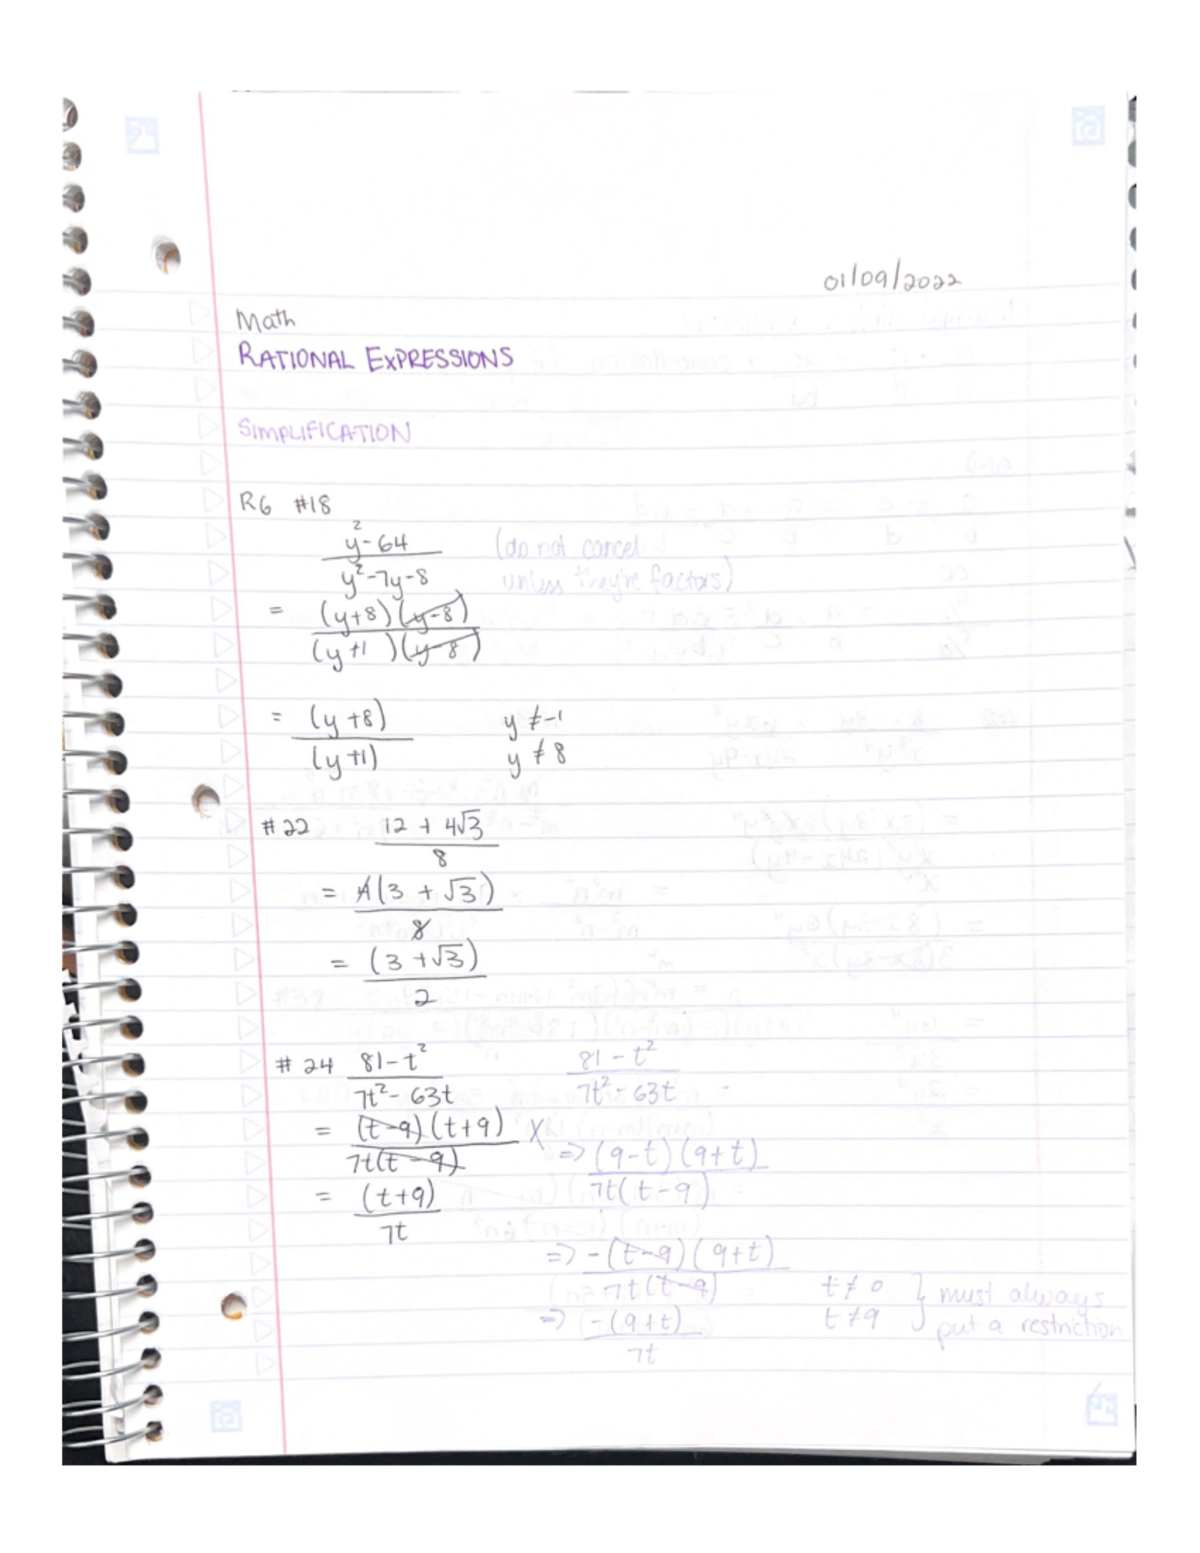 01/09/2022
Math
RATIONAL EXPRESSIONS
SIMPLIFICATION
R6 #18
y²-64 / y²-7y-8 (do not cancel unless they're factors)
= (y+8)(y-8) / (y+1)(y-8)
= (y+8) / (y+1) y≠-1
y≠8
#22 12 + 4√3 / 8
= 4(3 + √3) / 8
= (3 + √3) / 2
#24 81-t² / 7t²-63t
= (t-9)(t+9) / 7t(t-9) X
= (t+9) / 7t
81-t² / 7t²-63t
=> (9-t)(9+t) / 7t(t-9)
=> -(t-9)(9+t) / 7t(t-9)
=> -(9+t) / 7t
t≠0
t≠9 } must always
put a restriction